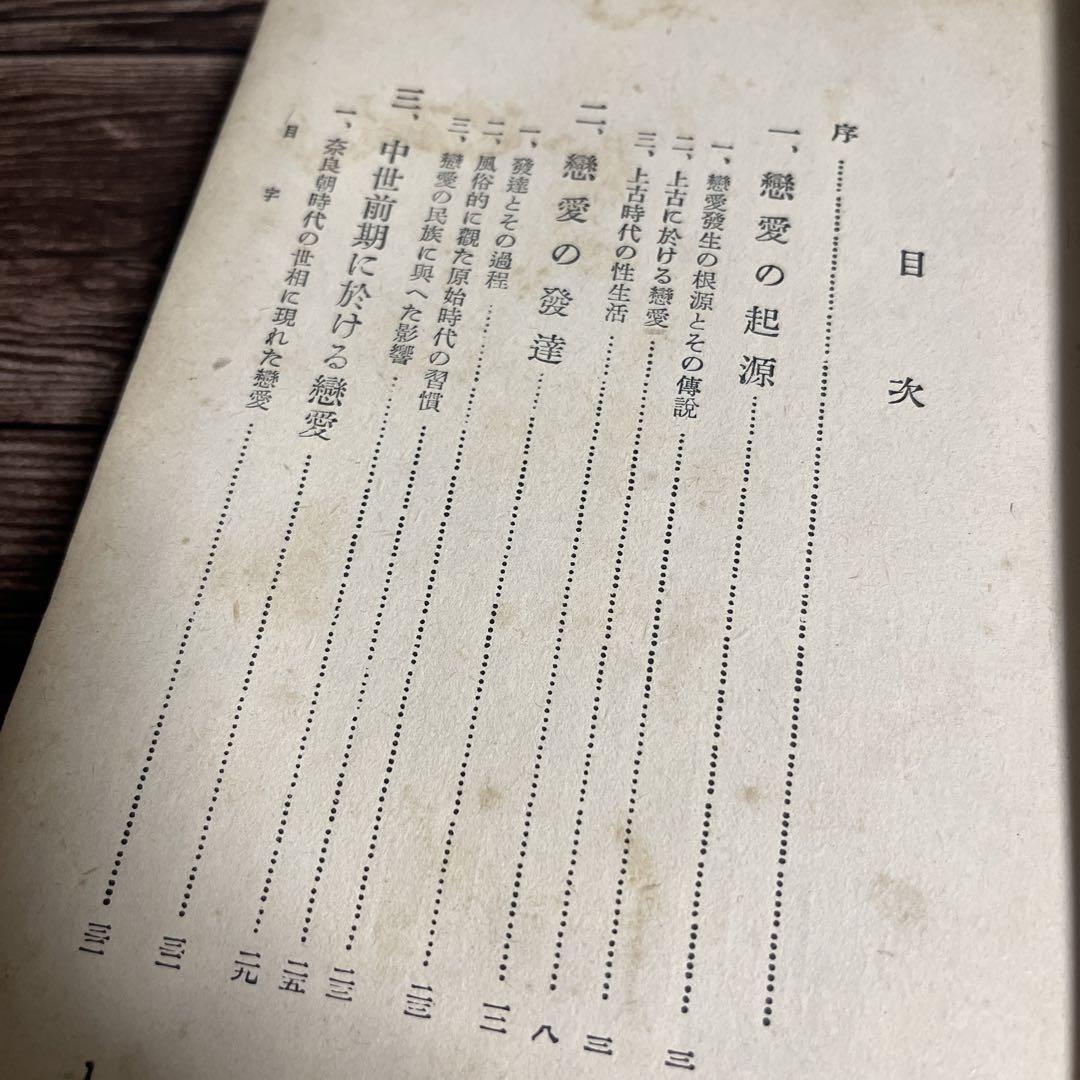 目次
序………
一、戀愛の起源………三
一、戀愛發生の根源とその傳說………三
二、上古に於ける戀愛………八
三、上古時代の性生活………一二
二、戀愛の發達………二三
一、發達とその過程………二三
二、風俗的に觀た原始時代の習慣………二五
三、戀愛の民族に與へた影響………二九
三、中世前期に於ける戀愛………三一
一、奈良朝時代の世相に現れた戀愛………三一
目字